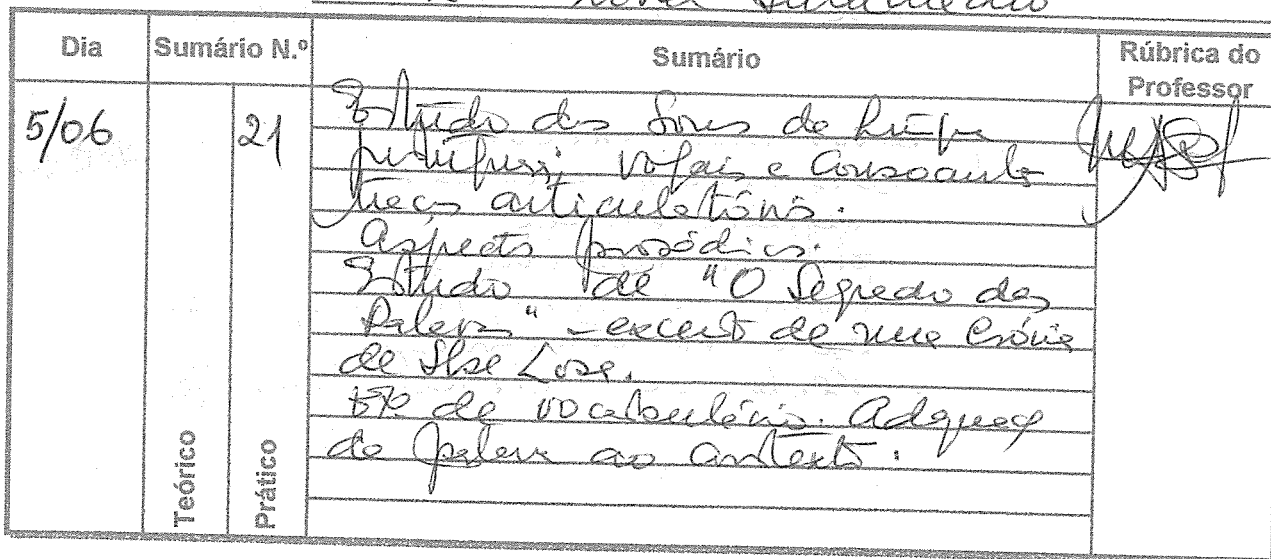 Dia Sumário N.º Sumário Rúbrica do Professor
5/06 21 Estudo dos Sons da Língua
portuguesa; vogais e consoantes
traços articulatórios.
Aspectos prosódicos.
Estudo de "O Segredo das
Palavras" - excerto de uma Crónica
de Ilse Losa.
de vocabulário. Adequaç
da palavra ao contexto.
Teórico Prático